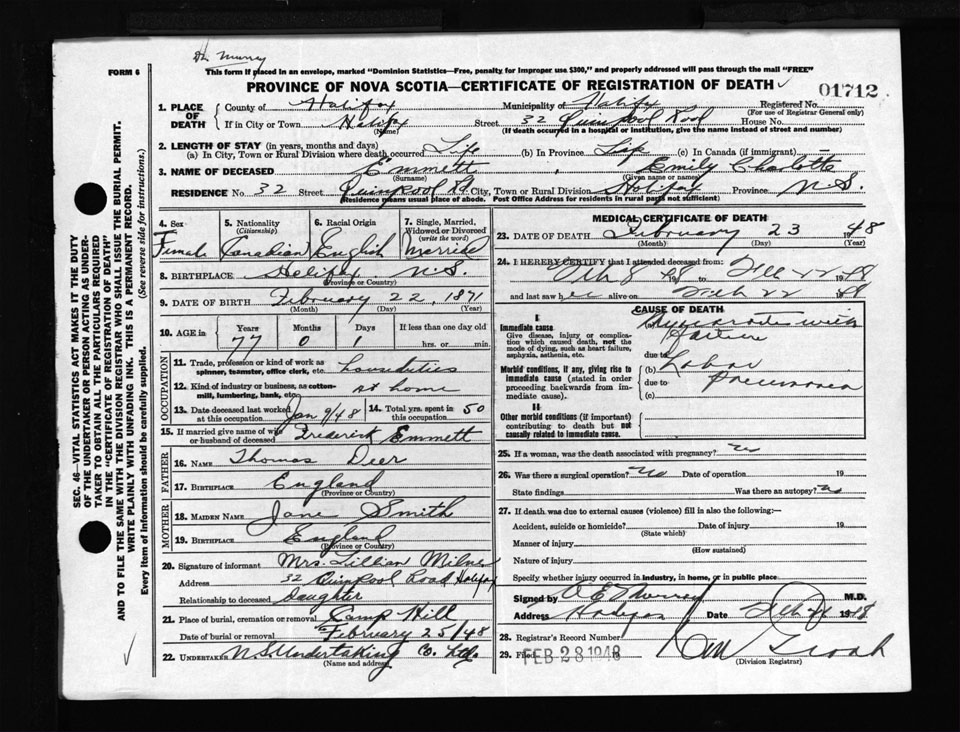 Dr. Murray
FORM 6
This form if placed in an envelope, marked "Dominion Statistics—Free, penalty for improper use $300," and properly addressed will pass through the mail "FREE"
PROVINCE OF NOVA SCOTIA—CERTIFICATE OF REGISTRATION OF DEATH
01712
1. PLACE OF DEATH
County of Halifax Municipality of Halifax Registered No.
(For use of Registrar General only)
If in City or Town Halifax Street 32 Quinpool Road House No.
(Name) (If death occurred in a hospital or institution, give the name instead of street and number)
2. LENGTH OF STAY (in years, months and days)
(a) In City, Town or Rural Division where death occurred Life (b) In Province Life (c) In Canada (if immigrant) —
3. NAME OF DECEASED Emmett, Emily Charlotte
(Surname) (Given name or names)
RESIDENCE No. 32 Street Quinpool Rd. City, Town or Rural Division Halifax Province N.S.
(Residence means usual place of abode. Post Office Address for residents in rural parts not sufficient)
4. Sex
Female
5. Nationality
(Citizenship)
Canadian
6. Racial Origin
English
7. Single, Married, Widowed or Divorced
(write the word)
Married
8. BIRTHPLACE Halifax N.S.
(Province or Country)
9. DATE OF BIRTH February 22, 1871
(Month) (Day) (Year)
10. AGE in
Years Months Days If less than one day old
77 0 1 hrs. or min.
OCCUPATION
11. Trade, profession or kind of work as spinner, teamster, office clerk, etc. housduties
12. Kind of industry or business, as cotton-mill, lumbering, bank, etc. at home
13. Date deceased last worked at this occupation Jan 9/48 14. Total yrs. spent in this occupation 50
15. If married give name of wife or husband of deceased Frederick Emmett
FATHER
16. NAME Thomas Deer
17. BIRTHPLACE England
(Province or Country)
MOTHER
18. MAIDEN NAME Jane Smith
19. BIRTHPLACE England
(Province or Country)
20. Signature of informant Mrs. Lillian Milne
Address 32 Quinpool Road Halifax
Relationship to deceased Daughter
21. Place of burial, cremation or removal Camp Hill
Date of burial or removal February 25/48
22. UNDERTAKER N.S. Undertaking Co. Ltd.
(Name and address)
MEDICAL CERTIFICATE OF DEATH
23. DATE OF DEATH February 23 1948
(Month) (Day) (Year)
24. I HEREBY CERTIFY that I attended deceased from:
Feb 8 48 to Feb 22 1948
and last saw her alive on Feb 22 1948
CAUSE OF DEATH
I
Immediate cause
Give disease, injury or complication which caused death, not the mode of dying, such as heart failure, asphyxia, asthenia, etc.
due to
Morbid conditions, if any, giving rise to immediate cause (stated in order proceeding backwards from immediate cause).
(b) Lobar
due to Pneumonia
(c)
II
Other morbid conditions (if important) contributing to death but not causally related to immediate cause.
25. If a woman, was the death associated with pregnancy? no
26. Was there a surgical operation? no Date of operation 19
State findings Was there an autopsy? no
27. If death was due to external causes (violence) fill in also the following:—
Accident, suicide or homicide? Date of injury 19
(State which)
Manner of injury
(How sustained)
Nature of injury
Specify whether injury occurred in industry, in home, or in public place
Signed by Murray M.D.
Address Halifax Date Feb 24 1948
28. Registrar's Record Number
29. Filed FEB 28 1948
(Division Registrar)
SEC. 46—VITAL STATISTICS ACT MAKES IT THE DUTY
OF THE UNDERTAKER OR PERSON ACTING AS UNDER-
TAKER TO OBTAIN ALL THE PARTICULARS REQUIRED
IN THE "CERTIFICATE OF REGISTRATION OF DEATH"
AND TO FILE THE SAME WITH THE DIVISION REGISTRAR WHO SHALL ISSUE THE BURIAL PERMIT.
WRITE PLAINLY WITH UNFADING INK. THIS IS A PERMANENT RECORD.
Every item of Information should be carefully supplied. (See reverse side for instructions.)